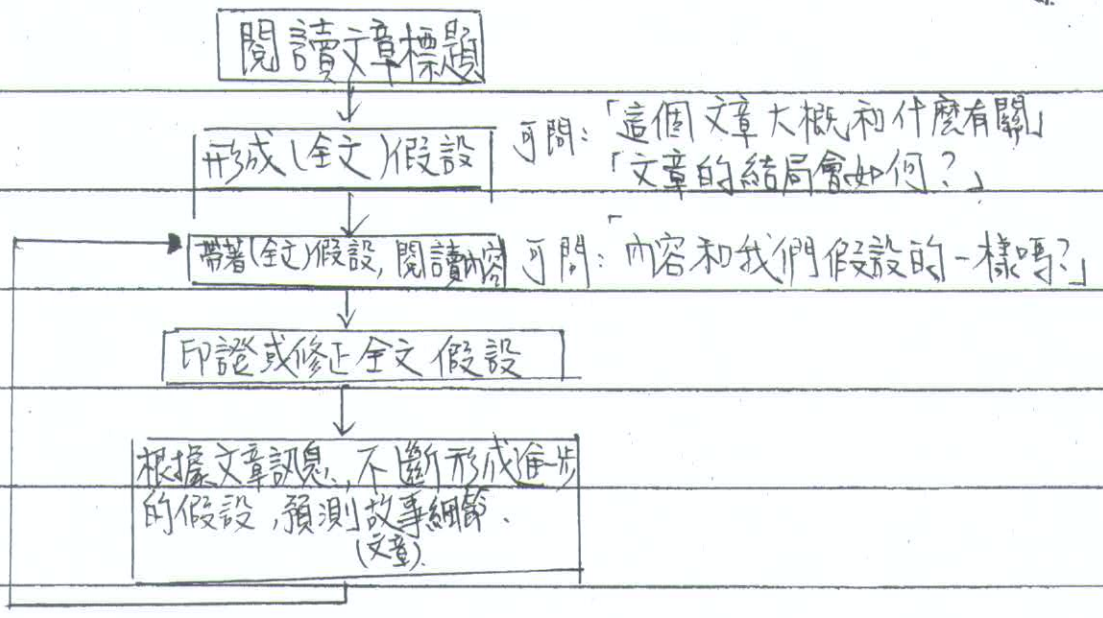 閱讀文章標題
形成(全文)假設
可問:「這個文章大概和什麼有關」
「文章的結局會如何?」
帶著(全文)假設,閱讀內容
可問:「內容和我們假設的一樣嗎?」
印證或修正全文假設
根據文章訊息,不斷形成進一步
的假設,預測故事細節.
(文章).